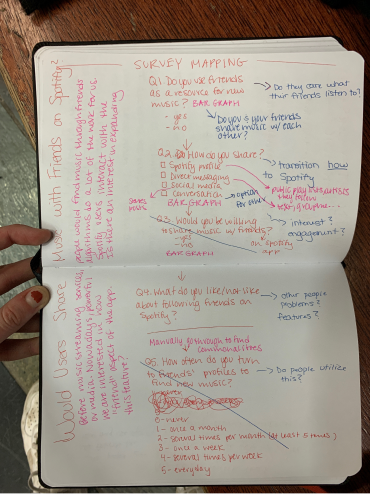 SURVEY MAPPING
Would Users Share Music with Friends on Spotify?
Before music streaming services,
people would find music through friends
or media. Nowadays, powerful
algorithms do a lot of the work for us.
We are interested in how
Spotify users interact with the
"friend" aspect of the app.
Is there an interest in expanding
this feature?
Q1. Do you use friends
as a resource for new
music? BAR GRAPH
- yes
- no
Do they care what
their friends listen to?
Do you & your friends
share music w/ each
other?
Q2. How do you share?
Spotify profile
Direct messaging
Social media
Conversation
BAR GRAPH
option
for other
transition how
to Spotify
public playlists
they
Q3. Would you be willing
to share music w/ friends?
on Spotify
app
yes
no
BAR GRAPH
interest?
engagement?
Q4. What do you like/not like
about following friends on
Spotify?
other people
problems?
features?
Manually go through to find
commonalities
Q5. How often do you turn
to friends' profiles to
find new music?
Do people utilize
this?
0 - never
1 - once a month
2 - several times per month (at least 3 times)
3 - once a week
4 - several times per week
5 - everyday